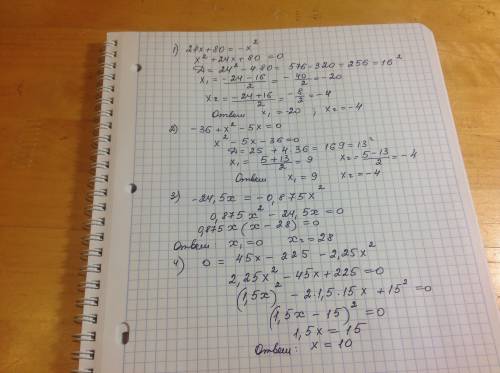 1) 24x + 80 = -x²
x² + 24x + 80 = 0
D = 24² - 4·80 = 576 - 320 = 256 = 16²
x₁ = (-24 - 16)/2 = -40/2 = -20
x₂ = (-24 + 16)/2 = -8/2 = -4
Ответ x₁ = -20, x₂ = -4
2) -36 + x² - 5x = 0
x² - 5x - 36 = 0
D = 25 + 4·36 = 169 = 13²
x₁ = (5 + 13)/2 = 9 x₂ = (5 - 13)/2 = -4
Ответ x₁ = 9 x₂ = -4
3) -24,5x = -0,875x²
0,875x² - 24,5x = 0
0,875x (x - 28) = 0
Ответ x₁ = 0 x₂ = 28
4) 0 = 45x - 225 - 2,25x²
2,25x² - 45x + 225 = 0
(1,5x)² - 2·1,5·15x + 15² = 0
(1,5x - 15)² = 0
1,5x = 15
Ответ: x = 10